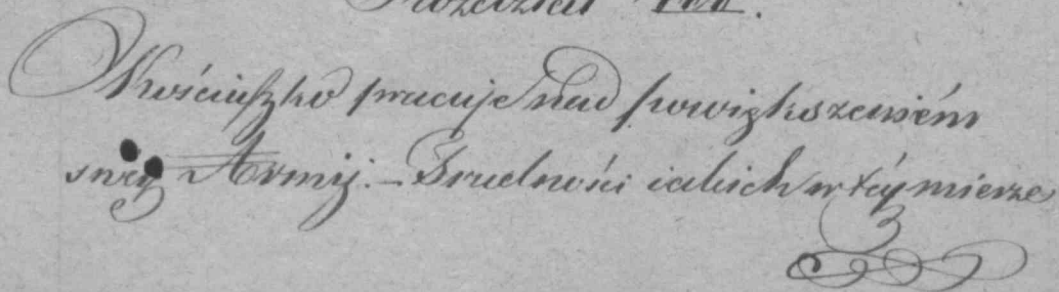 Rozdział VIII.
Kościuszko pracuje nad powiększeniém
swéy Armij. – Trudności iakich w téy mierze